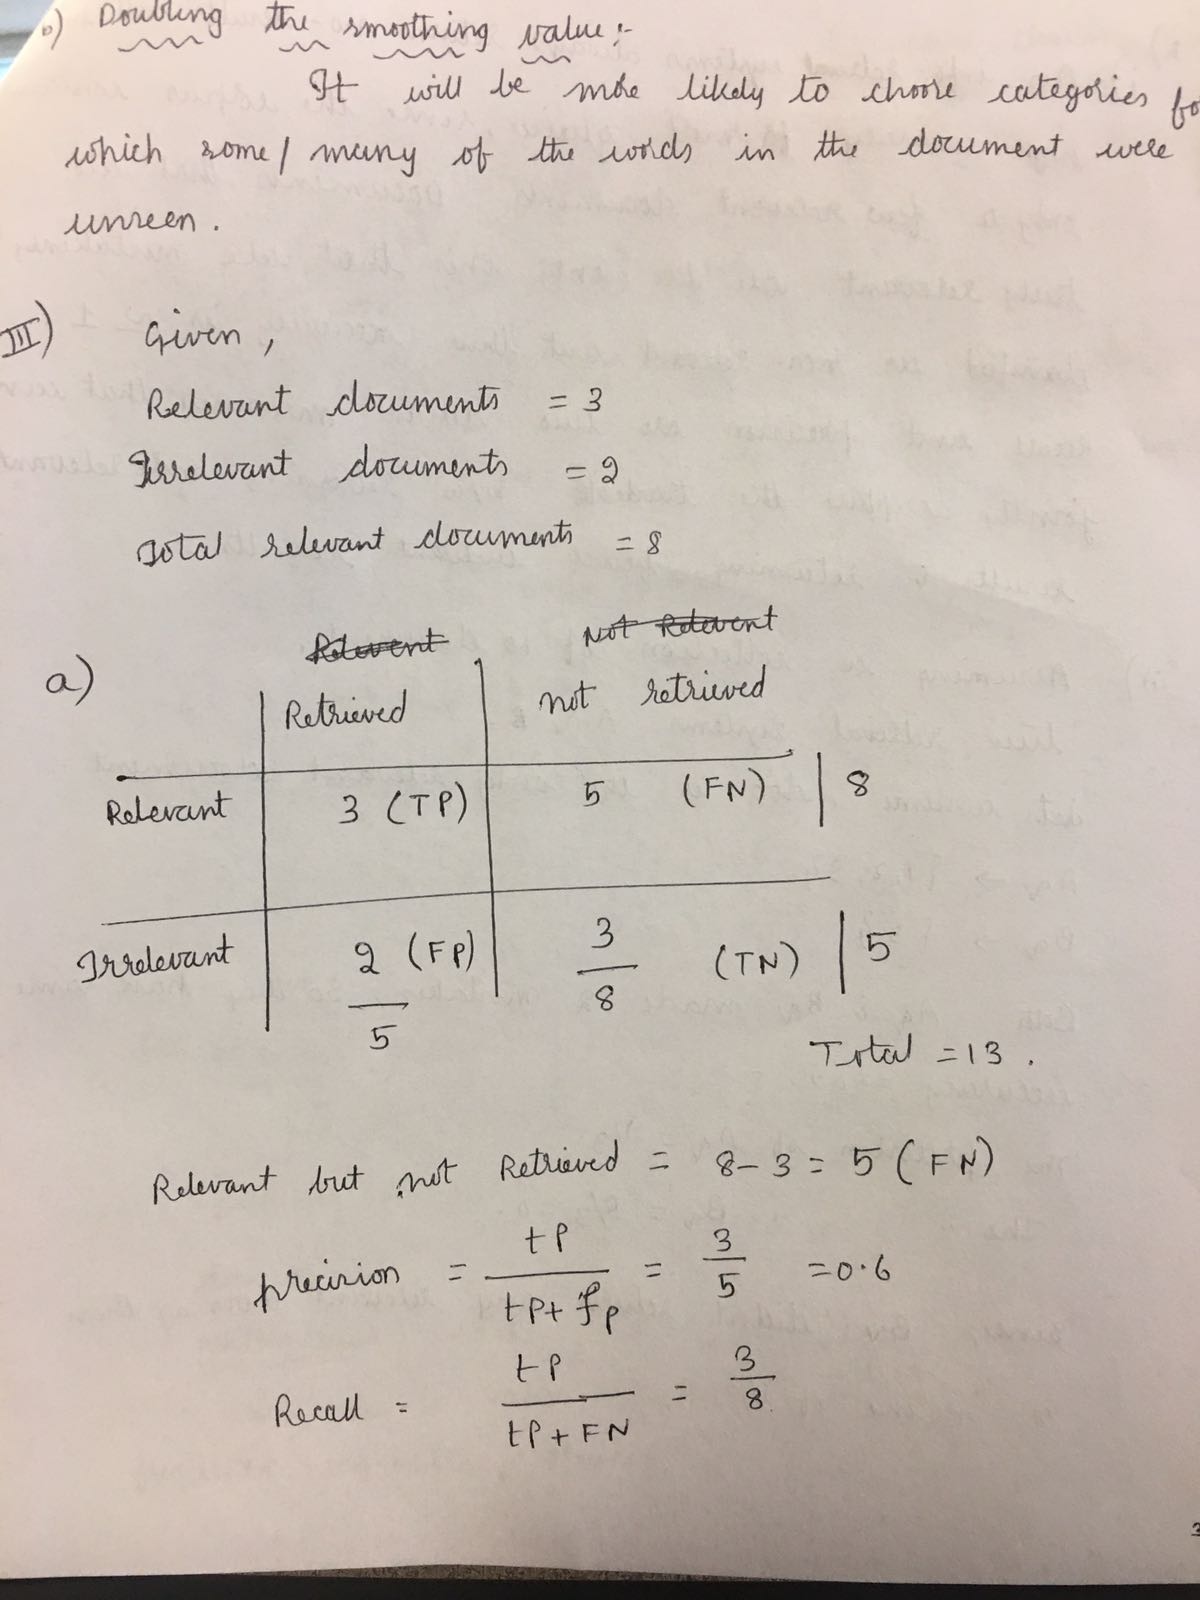 b) Doubling the smoothing value :-
It will be more likely to choose categories fo
which some/many of the words in the document were
unseen.
III) Given,
Relevant documents = 3
Irrelevant documents = 2
Total relevant documents = 8
Relevent Not Relevent
a) Retrieved not retrieved
Relevant 3 (TP) 5 (FN) | 8
Irrelevant 2 (FP) 3 (TN) | 5
5 8
Total = 13.
Relevant but not Retrieved = 8-3 = 5 (FN)
precision = tP / tP + fp = 3/5 = 0.6
Recall = tP / tP + FN = 3/8